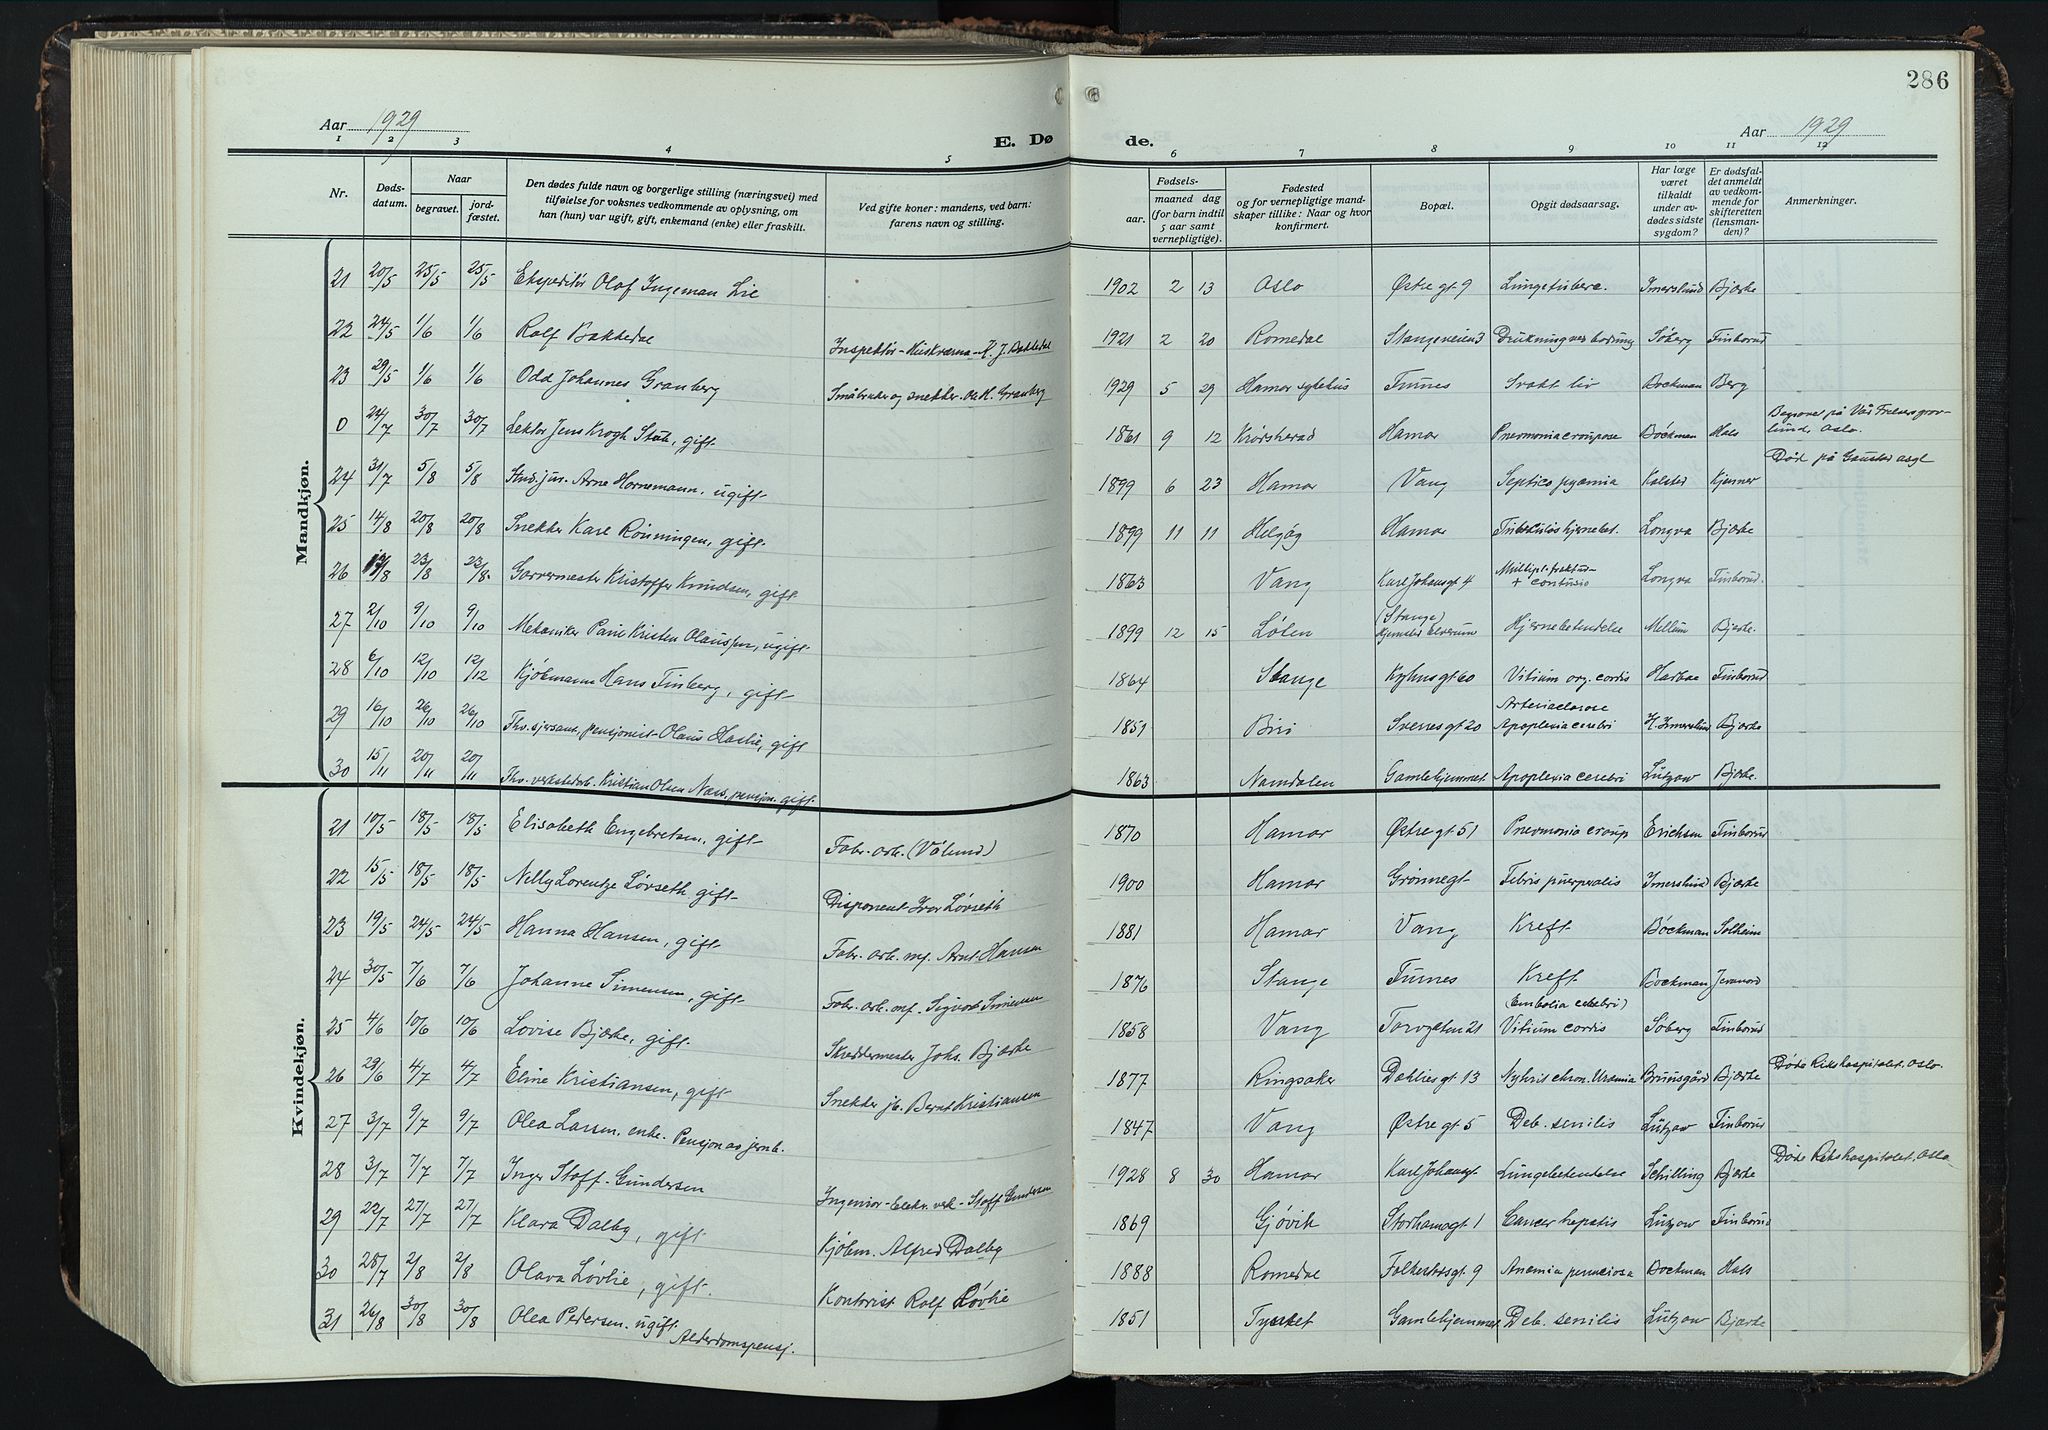 286
Aar 1929
E. Dø
de.
Aar 1929
1 2 3 4 5 6 7 8 9 10 11 12
Nr. Døds-datum. Naar begravet. jord-fæstet. Den dødes fulde navn og borgerlige stilling (næringsvei) med tilføielse for voksnes vedkommende av oplysning, om han (hun) var ugift, gift, enkemand (enke) eller fraskilt. Ved gifte koner: mandens, ved barn: farens navn og stilling. Fødsels- aar. maaned dag (for barn indtil 5 aar samt vernepligtige). Fødested og for vernepligtige mandskaper tillike: Naar og hvor konfirmert. Bopæl. Opgit dødsaarsag. Har læge været tilkaldt under avdødes sidste sygdom? Er dødsfaldet anmeldt av vedkommende for skifteretten (lensmanden)? Anmerkninger.
Mandkjøn.
21 20/5 25/5 25/5 Ekspeditør Olaf Ingeman Lie 1902 2 13 Oslo Østre gt 9 Lungetuberc. Imerslund Bjærke
22 24/5 1/6 1/6 Rolf Bakkedal Inspektør K. J. Bakkedal 1921 2 20 Romedal Stangeveien 3 Drukning ved badning Søberg Finborud
23 29/5 1/6 1/6 Odd Johannes Granberg Småbruker og snekker Granberg 1929 5 29 Hamar sykehus Furnes Svakt liv Bockman Berg
0 24/7 30/7 30/7 Lektor Jens Krogh Stub, gift 1861 9 12 Krødsherad Hamar Pneumonia crouposa Böckman Hals Begravet på Vår Frelsers gravlund, Oslo.
24 31/7 5/8 5/8 Stud. jur. Arne Hornemann, ugift 1899 6 23 Hamar Vang Septico pyæmia Kolstad Kjenner Død på Gaustad asyl
25 14/8 20/8 20/8 Snekker Karl Rønningen, gift. 1899 11 11 Helgøy Hamar Tuberkuløs hjernebet. Longva Bjærke
26 17/8 23/8 23/8 Garvermester Kristoffer Knudsen, gift 1863 Vang Karl Johansgt 4 Multipl. fraktur + contusio Longva Finborud.
27 2/10 9/10 9/10 Mekaniker Paul Kristen Olaussen, ugift. 1899 12 15 Løten (Stange) Elverum Hjernebetendelse Mellum Bjærke.
28 6/10 12/10 12/12 Kjøbmann Hans Finberg, gift 1864 Stange Kyhns gt 60 Vitium org. cordis Harboe Finborud
29 16/10 26/10 26/10 Fhv. sjersant, pensjonist Olaus Haslie, gift 1851 Biri Sverres gt 20 Arteriosclerose Apoplexia cerebri H. Imerslund Bjærke
30 15/11 20/11 20/11 Fhv. verkstedarb. Kristian Olsen Næss, pensjon. gift. 1863 Namdalen Gamlehjemmet Apoplexia cerebri Lützow Bjærke
Kvindekjøn.
21 10/5 18/5 18/5 Elisabeth Engebretsen, gift Fabr. arb. (Vålund) 1870 Hamar Østre gt 51 Pneumonia croup Erichsen Finborud
22 15/5 18/5 18/5 Nelly Lorentze Løvseth, gift Disponent Ivar Løvseth 1900 Hamar Grønnegt Febris puerperalis Imerslund Bjærke
23 19/5 24/5 24/5 Hanna Hansen, gift Fabr. arb. mf. Arnt Hansen 1881 Hamar Vang Kreft Böckman Solheim
24 30/5 7/6 7/6 Johanne Simensen, gift Fabr. arb. mf. Sigvart Simensen 1876 Stange Furnes Kreft Bockman
25 4/6 10/6 10/6 Lovise Bjærke, gift. Skreddermester Johs. Bjærke 1858 Vang Torvgaten 21 (Embolia cerebri) Vitium cordis Søberg Finborud
26 28/6 4/7 4/7 Eline Kristiansen, gift Snekker jb. Bernt Kristiansen 1877 Ringsaker Dahlies gt 13 Nefrit chron. Uræmia Brunsgård Bjærke Døde Rikshospitalet. Oslo.
27 3/7 9/7 9/7 Olea Larsen. enke. Pensjon av jernb. 1847 Vang Østre gt 5 Deb. senilis Lützow Finborud
28 3/7 7/7 7/7 Inger Stoff-Gundersen Ingeniør Elektr. verk Stoff Gundersen 1928 8 30 Hamar Karl Johansgt Lungebetendelse Schilling Bjærke Døde Rikshospitalet. Oslo
29 22/7 27/7 27/7 Klara Dalby, gift Kjøbm. Alfred Dalby 1869 Gjøvik Storhamargt 1 Cancer hepatis Lützow Finborud
30 28/7 2/8 2/8 Olava Løvlie, gift. Kontorist Rolf Løvlie 1888 Romedal Folkestads gt. 9 Anemia perniciosa Bockman Hals
31 26/8 30/8 30/8 Olea Pedersen. ugift Alderdomspensj. 1851 Tynset Gamlehjemmet Deb. senilis Lützow Bjærke